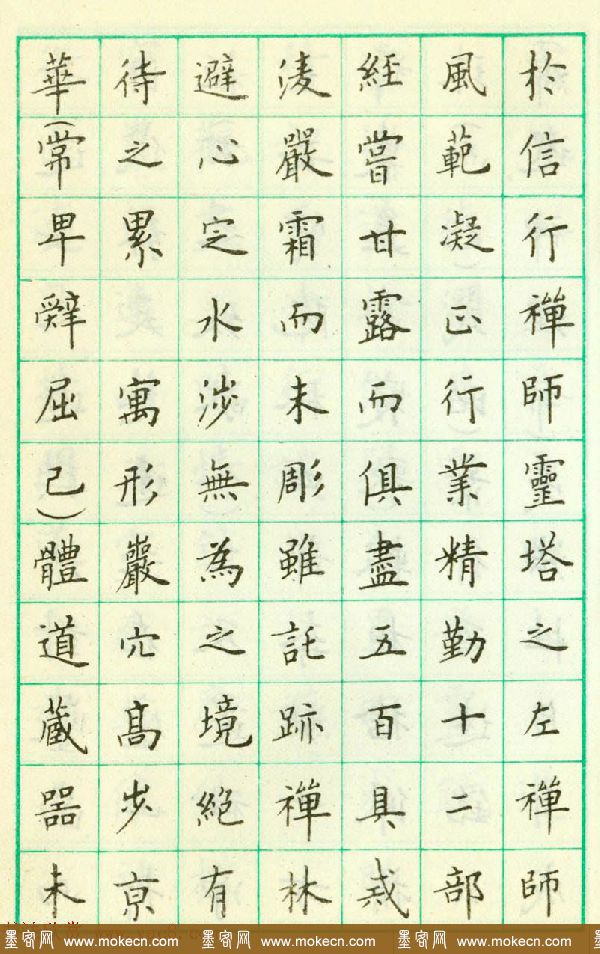 於信行禪師靈塔之左禪師
風範凝正行業精勤十二部
經嘗甘露而俱盡五百具戒
淩嚴霜而未彫雖託跡禪林
避心定水涉無為之境絕有
待之累 寓形巖穴高步京
華(常卑辭屈己)體道藏器未
墨客网 www.mokecn.com 墨客网 www.mokecn.com 墨客网 www.mokecn.com